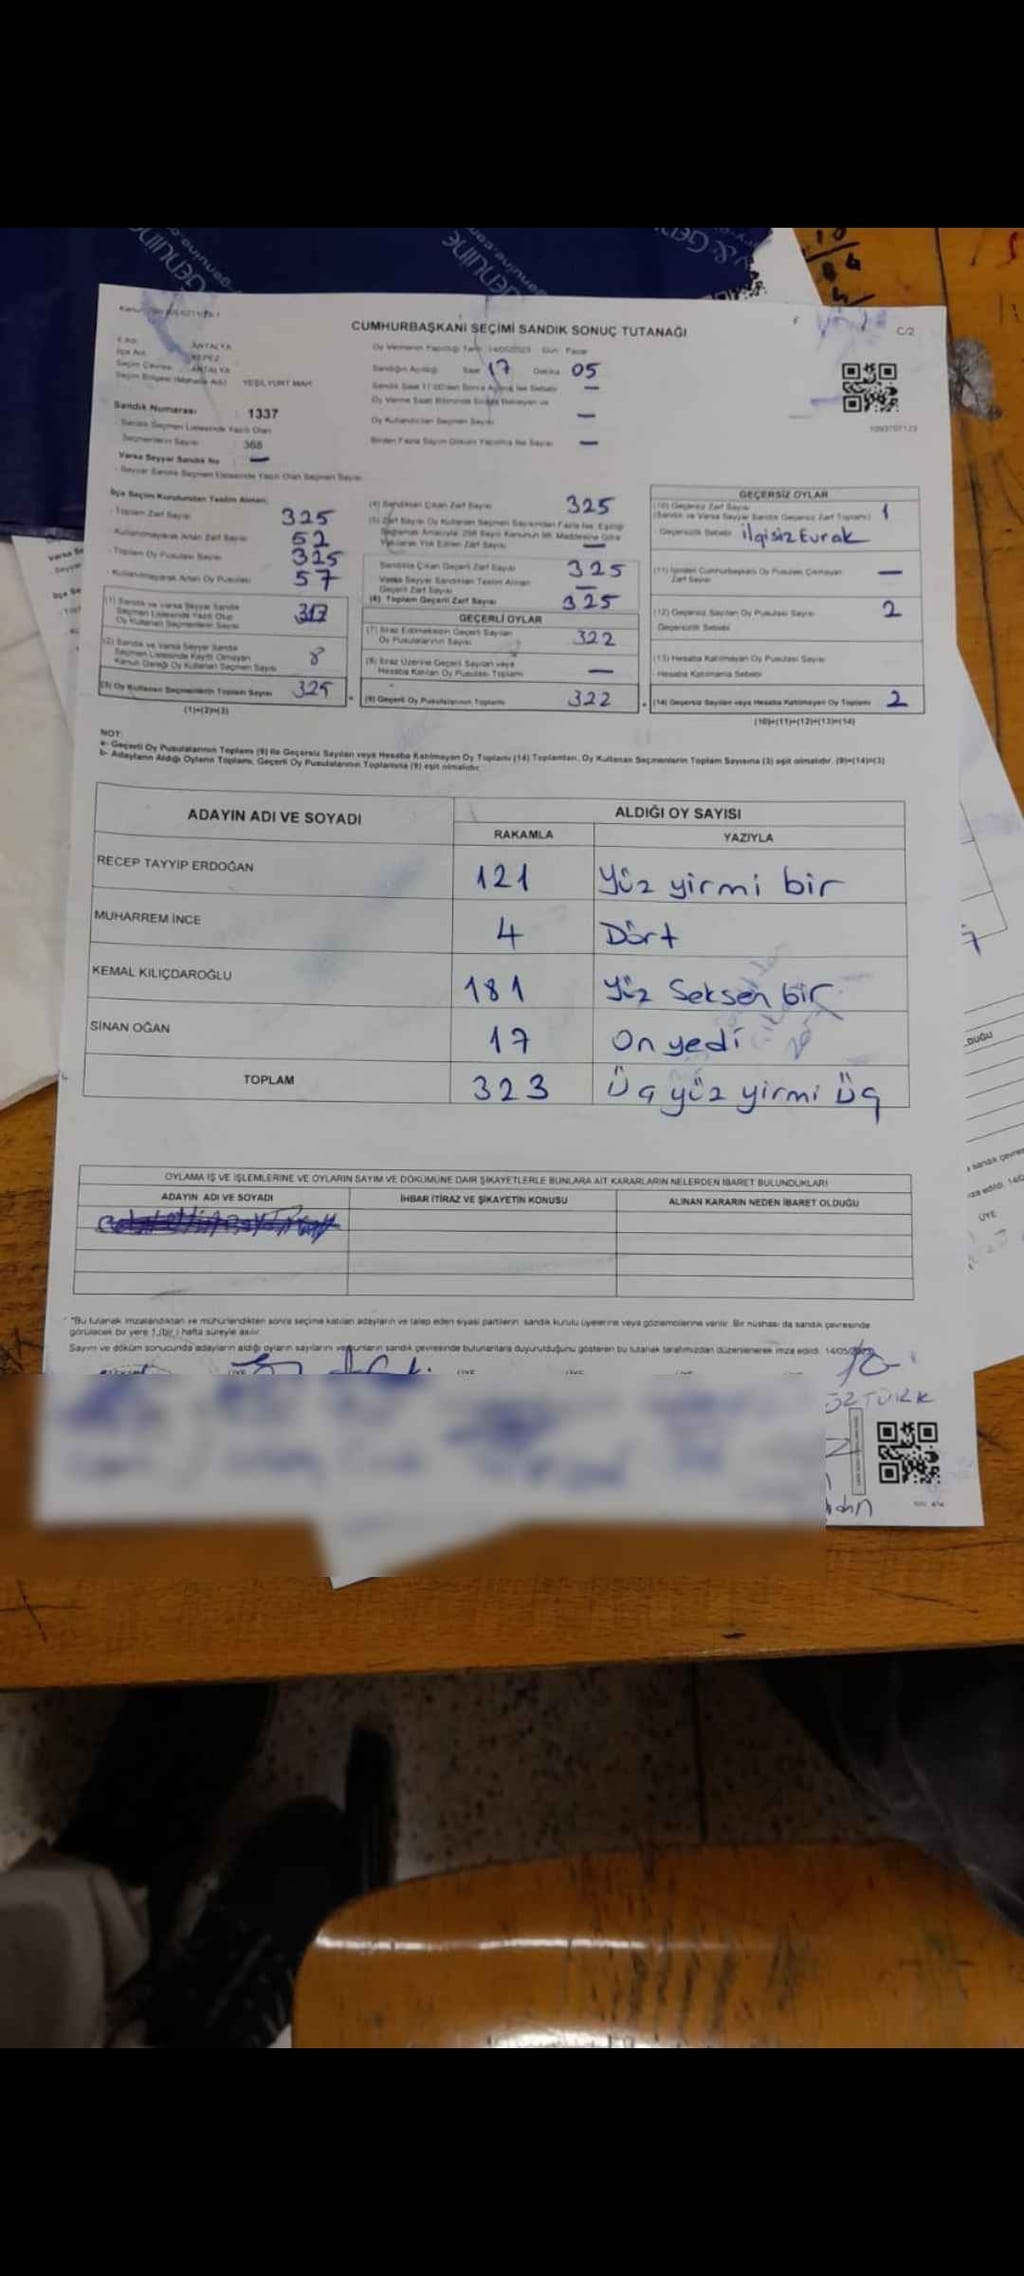 Genuine
genuine.com
Genuine
genuine.com
CUMHURBAŞKANI SEÇİMİ SANDIK SONUÇ TUTANAĞI
C/2
İl Adı: ANTALYA
İlçe Adı: KEPEZ
Seçim Çevresi: ANTALYA
Seçim Bölgesi (Mahalle Adı): YEŞİLYURT MAH
Oy Vermenin Yapıldığı Tarih: 14/05/2023 Gün: Pazar
Sandığın Açıldığı Saat 17 Dakika 05
Sandık Saat 17:00'den Sonra Açılmış İse Sebebi —
Oy Verme Saati Bitiminde Sırada Bekleyen ve
Oy Kullandırılan Seçmen Sayısı —
Birden Fazla Sayım Döküm Yapılmış İse Sayısı —
Sandık Numarası 1337
Sandık Seçmen Listesinde Yazılı Olan
Seçmenlerin Sayısı 368
Varsa Seyyar Sandık No —
Seyyar Sandık Seçmen Listesinde Yazılı Olan Seçmen Sayısı
İlçe Seçim Kurulundan Teslim Alınan;
Toplam Zarf Sayısı 325
Kullanılmayarak Artan Zarf Sayısı 52
Toplam Oy Pusulası Sayısı 325
Kullanılmayarak Artan Oy Pusulası 57
(1) Sandık ve Varsa Seyyar Sandık
Seçmen Listesinde Yazılı Olup
Oy Kullanan Seçmenlerin Sayısı 317
(2) Sandık ve Varsa Seyyar Sandık
Seçmen Listesinde Kayıtlı Olmayan
Kanun Gereği Oy Kullanan Seçmen Sayısı 8
(3) Oy Kullanan Seçmenlerin Toplam Sayısı 325
(1)+(2)=(3)
(4) Sandıktan Çıkan Zarf Sayısı 325
(5) Zarf Sayısı Oy Kullanan Seçmen Sayısından Fazla İse, Eşitliği
Sağlamak Amacıyla 298 Sayılı Kanunun 98. Maddesine Göre
Yakılarak Yok Edilen Zarf Sayısı —
Sandıkta Çıkan Geçerli Zarf Sayısı 325
Varsa Seyyar Sandıktan Teslim Alınan
Geçerli Zarf Sayısı —
(6) Toplam Geçerli Zarf Sayısı 325
GEÇERLİ OYLAR
(7) İtiraz Edilmeksizin Geçerli Sayılan
Oy Pusulalarının Sayısı 322
(8) İtiraz Üzerine Geçerli Sayılan veya
Hesaba Katılan Oy Pusulası Toplamı —
(9) Geçerli Oy Pusulalarının Toplamı 322
GEÇERSİZ OYLAR
(10) Geçersiz Zarf Sayısı
(Sandık ve Varsa Seyyar Sandık Geçersiz Zarf Toplamı) 1
Geçersizlik Sebebi ilgisiz Evrak
(11) İçinden Cumhurbaşkanı Oy Pusulası Çıkmayan
Zarf Sayısı —
(12) Geçersiz Sayılan Oy Pusulası Sayısı 2
Geçersizlik Sebebi
(13) Hesaba Katılmayan Oy Pusulası Sayısı
Hesaba Katılmama Sebebi
(14) Geçersiz Sayılan veya Hesaba Katılmayan Oy Toplamı 2
(10)+(11)+(12)+(13)=(14)
NOT:
a- Geçerli Oy Pusulalarının Toplamı (9) ile Geçersiz Sayılan veya Hesaba Katılmayan Oy Toplamı (14) Toplamları, Oy Kullanan Seçmenlerin Toplam Sayısına (3) eşit olmalıdır. (9)+(14)=(3)
b- Adayların Aldığı Oyların Toplamı, Geçerli Oy Pusulalarının Toplamına (9) eşit olmalıdır.
ADAYIN ADI VE SOYADI
ALDIĞI OY SAYISI
RAKAMLA YAZIYLA
RECEP TAYYİP ERDOĞAN 121 Yüz yirmi bir
MUHARREM İNCE 4 Dört
KEMAL KILIÇDAROĞLU 181 Yüz Seksen bir
SİNAN OĞAN 17 On yedi
TOPLAM 323 Üç yüz yirmi Üç
OYLAMA İŞ VE İŞLEMLERİNE VE OYLARIN SAYIM VE DÖKÜMÜNE DAİR ŞİKAYETLERLE BUNLARA AİT KARARLARIN NELERDEN İBARET BULUNDUKLARI
ADAYIN ADI VE SOYADI İHBAR İTİRAZ VE ŞİKAYETİN KONUSU ALINAN KARARIN NEDEN İBARET OLDUĞU
*Bu tutanak imzalandıktan ve mühürlendikten sonra seçime katılan adayların ve talep eden siyasi partilerin, sandık kurulu üyelerine veya gözlemcilerine verilir. Bir nüshası da sandık çevresinde
görülecek bir yere 1 (bir) hafta süreyle asılır.
Sayım ve döküm sonucunda adayların aldığı oyların sayılarını ve bunların sandık çevresinde bulunanlara duyurulduğunu gösteren bu tutanak tarafımızdan düzenlenerek imza edildi. 14/05/2023
ÜYE